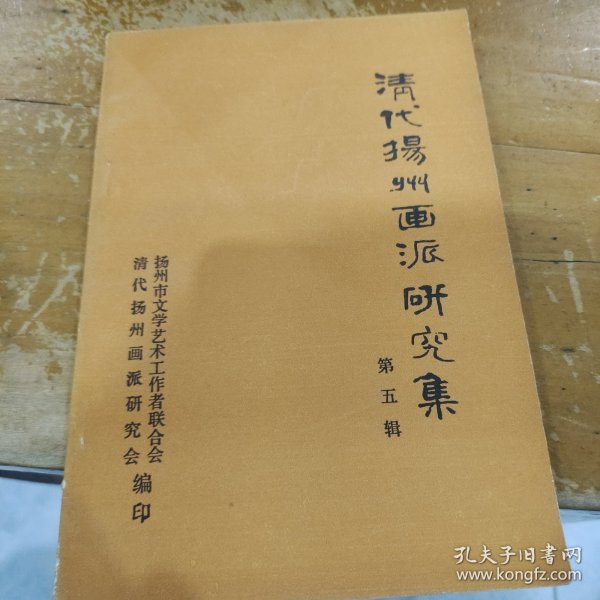 清代揚州画派研究集
第五辑
扬州市文学艺术工作者联合会
清代扬州画派研究会
编印
孔夫子旧书网
www.kongfz.com